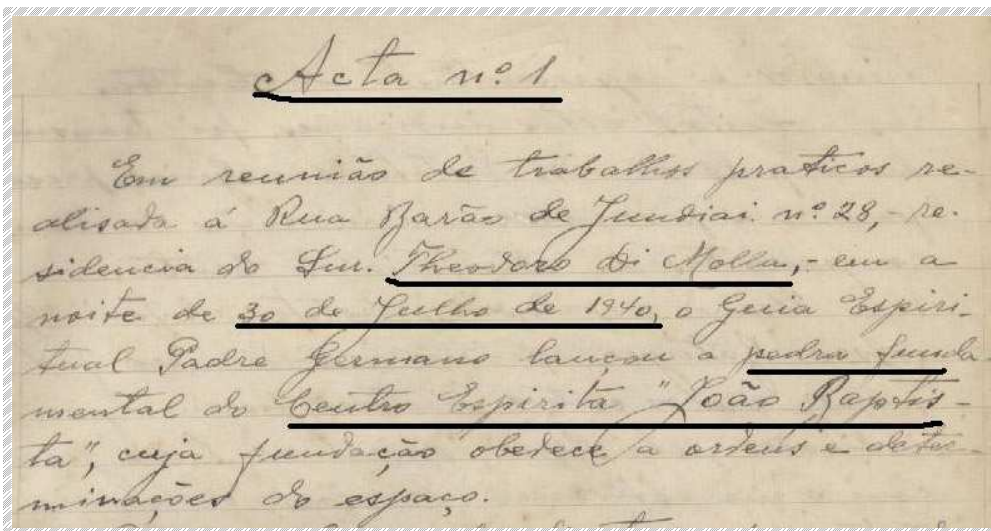 Acta nº 1
Em reunião de trabalhos praticos re-
alisada á Rua Barão de Jundiai. nº 28,- re-
sidencia do Snr. Theodoro Di Molla,- em a
noite de 30 de Julho de 1940, o Guia Espiri-
tual Padre Germano lançou a pedra funda
mental do Centro Espirita "João Baptis-
ta", cuja fundação obedece a ordens e deter-
minações do espaço.